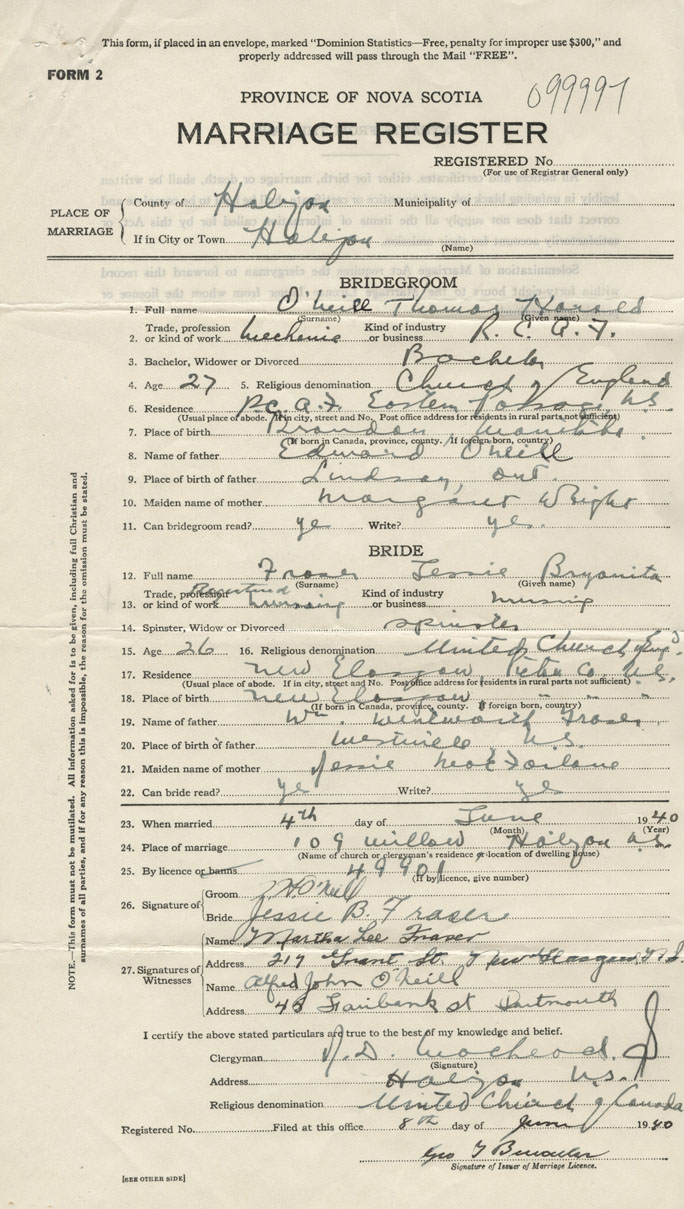 This form, if placed in an envelope, marked "Dominion Statistics—Free, penalty for improper use $300," and
properly addressed will pass through the Mail "FREE".
FORM 2
099997
PROVINCE OF NOVA SCOTIA
MARRIAGE REGISTER
REGISTERED No.
(For use of Registrar General only)
PLACE OF MARRIAGE
County of Halifax Municipality of
If in City or Town Halifax
(Name)
BRIDEGROOM
1. Full name O'Neill Thomas Harold
(Surname) (Given name)
2. Trade, profession or kind of work Mechanic Kind of industry or business R. C. A. F.
3. Bachelor, Widower or Divorced Bachelor
4. Age 27 5. Religious denomination Church of England
6. Residence R.C.A.F. Eastern Passage, N.S.
(Usual place of abode. If in city, street and No. Post office address for residents in rural parts not sufficient)
7. Place of birth Brandon Manitoba
(If born in Canada, province, county. If foreign born, country)
8. Name of father Edward O'Neill
9. Place of birth of father Lindsay, Ont.
10. Maiden name of mother Margaret Wright
11. Can bridegroom read? yes Write? yes.
BRIDE
12. Full name Fraser Jessie Bryanita
(Surname) (Given name)
13. Trade, profession or kind of work nursing Kind of industry or business nursing
14. Spinster, Widow or Divorced spinster
15. Age 26 16. Religious denomination United Church
17. Residence New Glasgow, Pictou Co. N.S.
(Usual place of abode. If in city, street and No. Post office address for residents in rural parts not sufficient)
18. Place of birth New Glasgow " " "
(If born in Canada, province, county. If foreign born, country)
19. Name of father Wm. Wentworth Fraser
20. Place of birth of father Westville, N.S.
21. Maiden name of mother Jessie MacFarlane
22. Can bride read? yes Write? yes
23. When married 4th day of June 1940
(Month) (Year)
24. Place of marriage 109 Willow Halifax N.S.
(Name of church or clergyman's residence or location of dwelling house)
25. By licence or banns 49901
(If by licence, give number)
26. Signature of
Groom T H O'Neill
Bride Jessie B. Fraser
27. Signatures of Witnesses
Name Martha Lee Fraser
Address 217 Grant St. New Glasgow, N.S.
Name Alfred John O'Neill
Address 45 Fairbank st Dartmouth
I certify the above stated particulars are true to the best of my knowledge and belief.
Clergyman
(Signature)
Address Halifax N.S.
Religious denomination United Church of Canada
Registered No. Filed at this office 8th day of June 1940
Signature of Issuer of Marriage Licence.
[SEE OTHER SIDE]
NOTE.—This form must not be mutilated. All information asked for is to be given, including full Christian and
surnames of all parties, and if for any reason this is impossible, the reason for the omission must be stated.